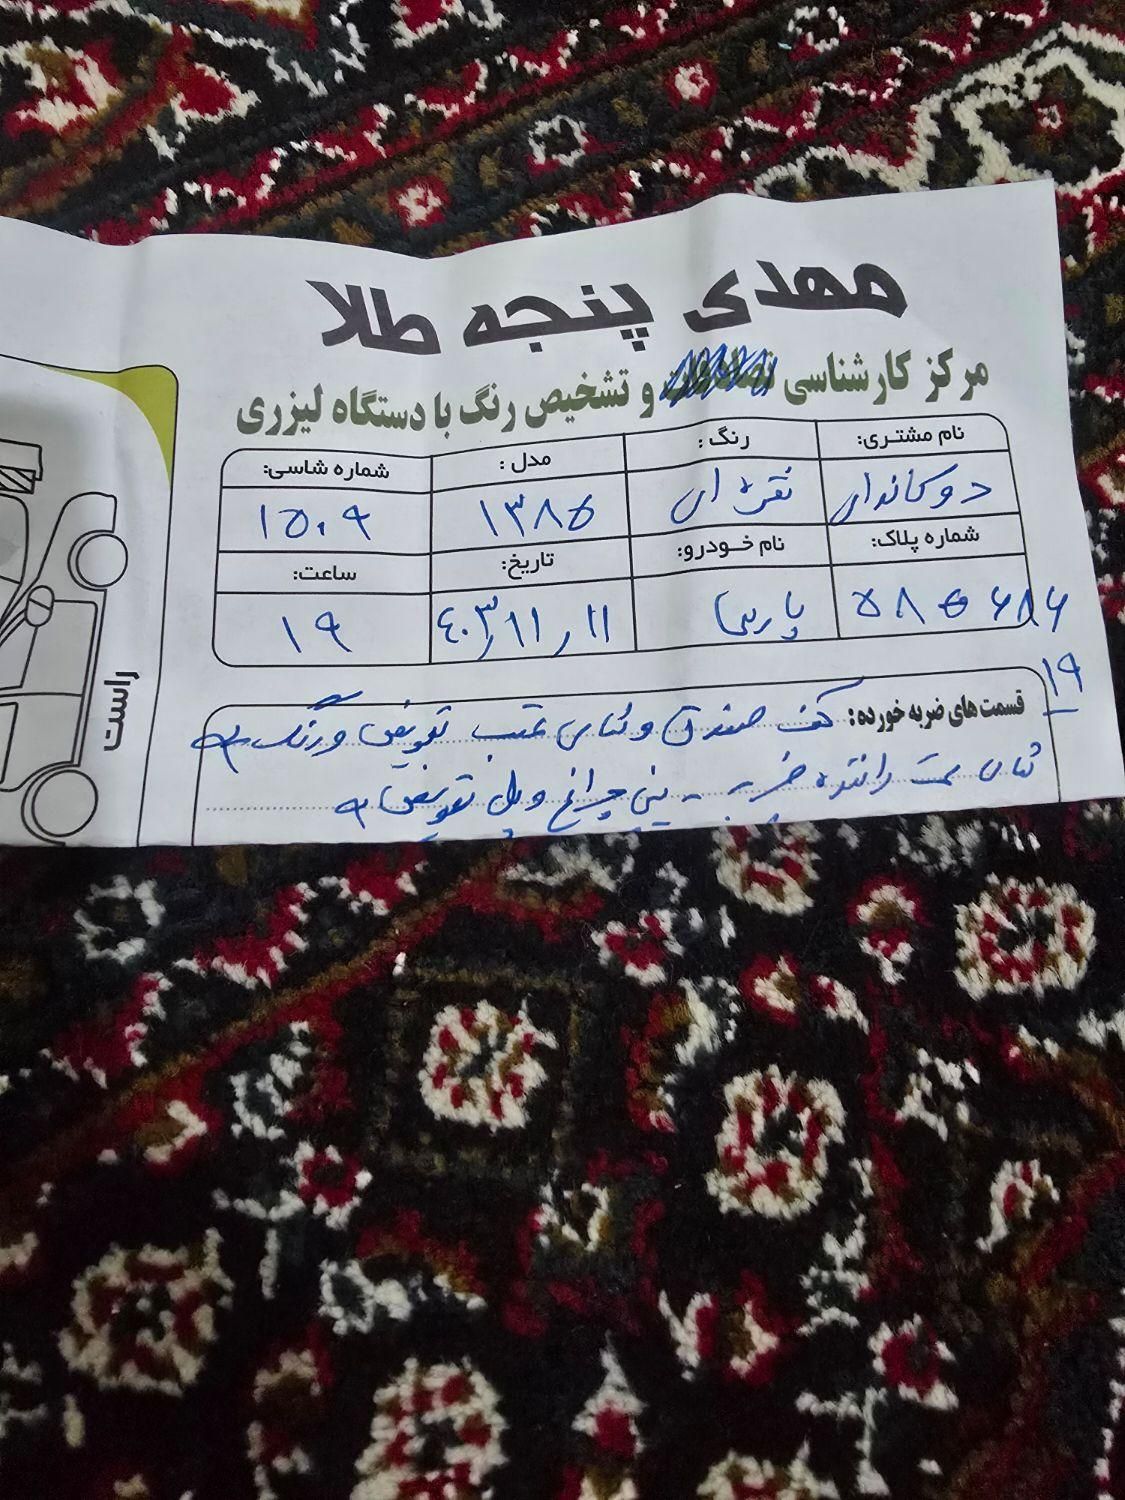 مهدی پنجه طلا
مرکز کارشناسی و تشخیص رنگ با دستگاه لیزری
نام مشتری: رنگ: مدل: شماره شاسی:
دوکاندار نقره ای ۱۳۸۵ ۱۵۰۹
شماره پلاک: نام خودرو: تاریخ: ساعت:
پارس ۴۰۳/۱۱/۱۱ ۱۹
۱۹
قسمت های ضربه خورده: کف صندوق و سینی عقب تعویض و رنگ
سمت راننده ضربه - سینی چراغ و پل تعویض
راست